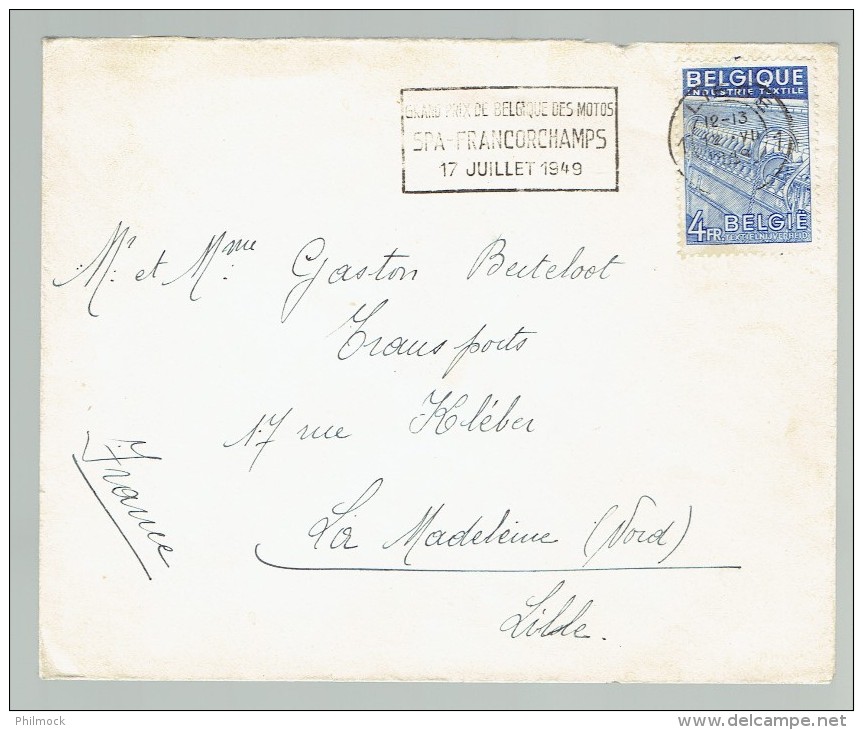 GRAND PRIX DE BELGIQUE DES MOTOS
SPA-FRANCORCHAMPS
17 JUILLET 1949
BELGIQUE
INDUSTRIE TEXTILE
12-13
4FR. BELGIË
TEXTIELNIJVERHEID
Mr. et Mme. Gaston Berteloot
Transports
17 rue Kléber
La Madeleine (Nord)
Lille.
France
Philmock
www.delcampe.net